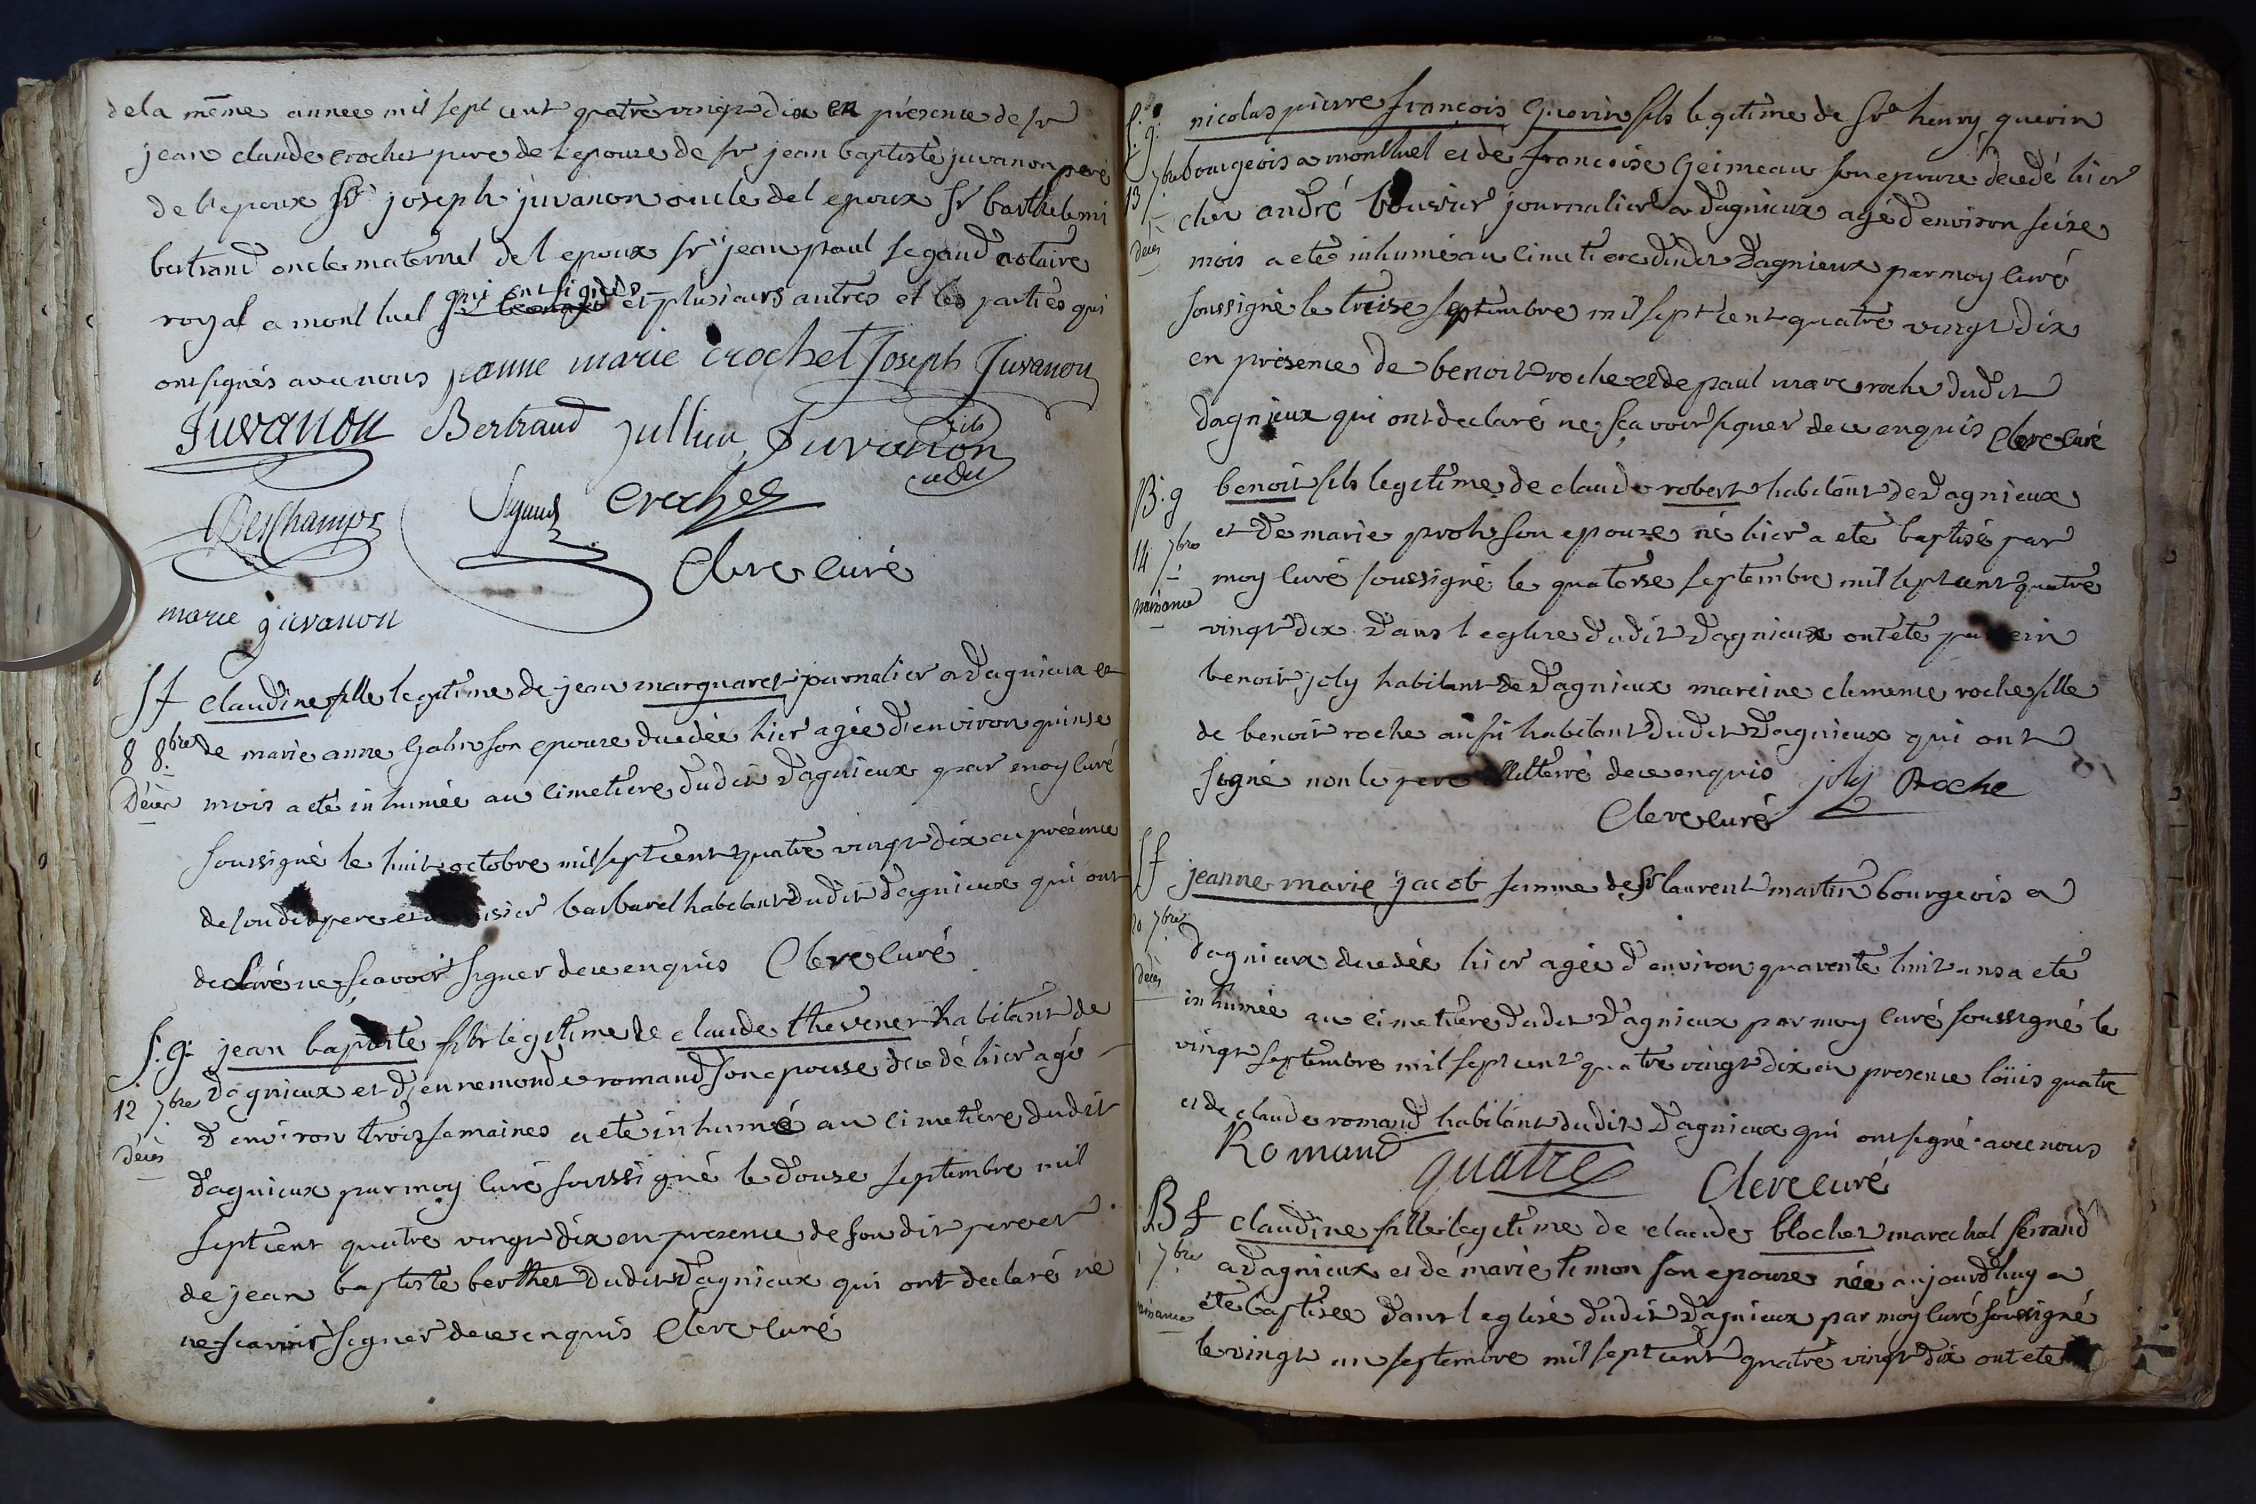 dela même année mil sept cent quatre vingt dix en présence de sr
jean claude crochet pere de l'epouse de sr jean baptiste juvanon pere
de l'epoux sr joseph juvanon oncle del epoux sr barthelemi
bertrand oncle maternel del epoux sr jean paul segaud notaire
royal a mont luel qui ont signés et plusieurs autres et les parties qui
ont signés avec nous jeanne marie crochet Joseph Juvanon
Juvanon Bertrand Jullien Juvanon fils
cadet
Deschamps Segaud crochet
Clerc curé
marie juvanon
Sf claudine fille legitime de jean marguaret journalier a dagnieux et
8 8.bre de marie anne son epouze decedée hier agée d'environ quinse
Décès mois a eté inhumée au cimetiere dudit dagnieux par moy curé
soussigné le huit octobre mil sept cent quatre vingt dix en présence
de son dit pere et barbarel habitant dudit dagnieux qui ont
declaré ne sçavoir signer de ce enquis Clerc curé
S.g. jean baptiste fils legitime de claude thevenet habitant de
12 7bre dagnieux et d'ennemonde romand son epouse decedé hier agé
Décès d'environ trois semaines a eté inhumé au cimetiere dudit
dagnieux par moy curé soussigné le douse septembre mil
sept cent quatre vingt dix en presence de son dit pere et
de jean baptiste berthet dudit dagnieux qui ont declaré ne
ne scavoir signer de ce enquis Clerc curé
S.g. nicolas pierre françois Guerin fils legitime de Sr henry guerin
13 7bre bourgeois a montluel et de francoise Geimeau son epouze decedé hier
Décès chez andré bouvier journalier a dagnieux agé d'environ seize
mois a eté inhumé au cimetiere dudit dagnieux par moy curé
soussigné le treise septembre mil sept cent quatre vingt dix
en présence de benoit roche et de paul marc roche dudit
dagnieux qui ont declaré ne sçavoir signer de ce enquis Clerc curé
B.g benoit fils legitime de claude robert habitant de dagnieux
14 7bre et de marie proh son epouze né hier a eté baptisé par
naissance moy curé soussigné le quatorse septembre mil sept cent quatre
vingt dix dans l eglise dudit dagnieux ont eté parrein
benoit joly habitant de dagnieux mareine clemence roche fille
de benoit roche aussi habitant dudit dagnieux qui ont
signé non le pere illeterré de ce enquis joly Roche
Clerc curé
Sf jeanne marie jacob femme de sr laurent martin bourgeois a
20 7bre dagnieux decedée hier agée d'environ quarente huit ans a eté
Décès inhumée au cimetiere dudit dagnieux par moy curé soussigné le
vingt septembre mil sept cent quatre vingt dix en presence loüis quatre
et de claude romand habitant dudit dagnieux qui ont signé avec nous
Romand quatre Clerc curé
B f claudine fille legitime de claude blochet marechal ferrand
7bre a dagnieux et de marie simon son epouze née aujourdhuy a
naissance eté baptisée dans l eglise dudit dagnieux par moy curé soussigné
le vingt un septembre mil sept cent quatre vingt dix ont eté